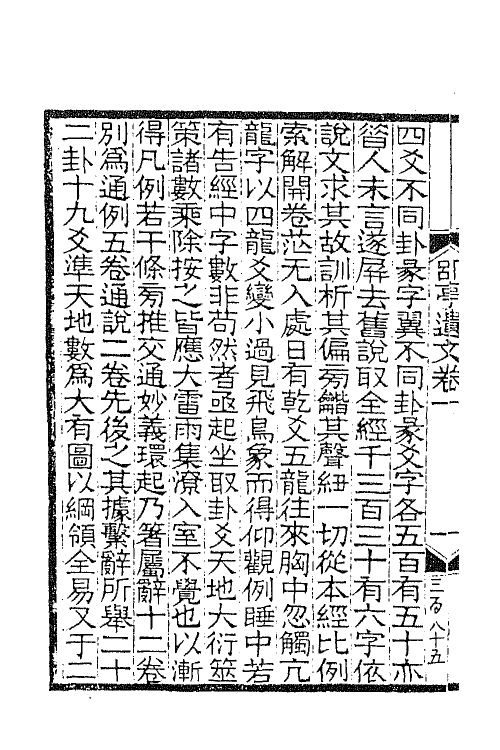 四爻不同卦彖字翼不同卦彖爻字各五百有五十亦
昝人未言遂屏去舊說取全經千三百三十有六字依
說文求其故訓析其偏旁鬠其聲紐一切從本經比例
索解開卷茫无入處日有乾爻五龍往來胸中忽觸亢
龍字以四龍爻變小過見飛鳥象而得仰觀例睡中若
有告經中字數非苟然者亟起坐取卦爻天地大衍筮
策諸數乘除按之皆應大雷雨集潦入室不覺也以漸
得凡例若干條旁推交通妙義環起乃箸屬辭十二卷
別爲通例五卷通說二卷先後之其據繫辭所舉二十
二卦十九爻準天地數爲大有圖以綱領全易又于二
邵亭遺文卷一
一
三百八十五